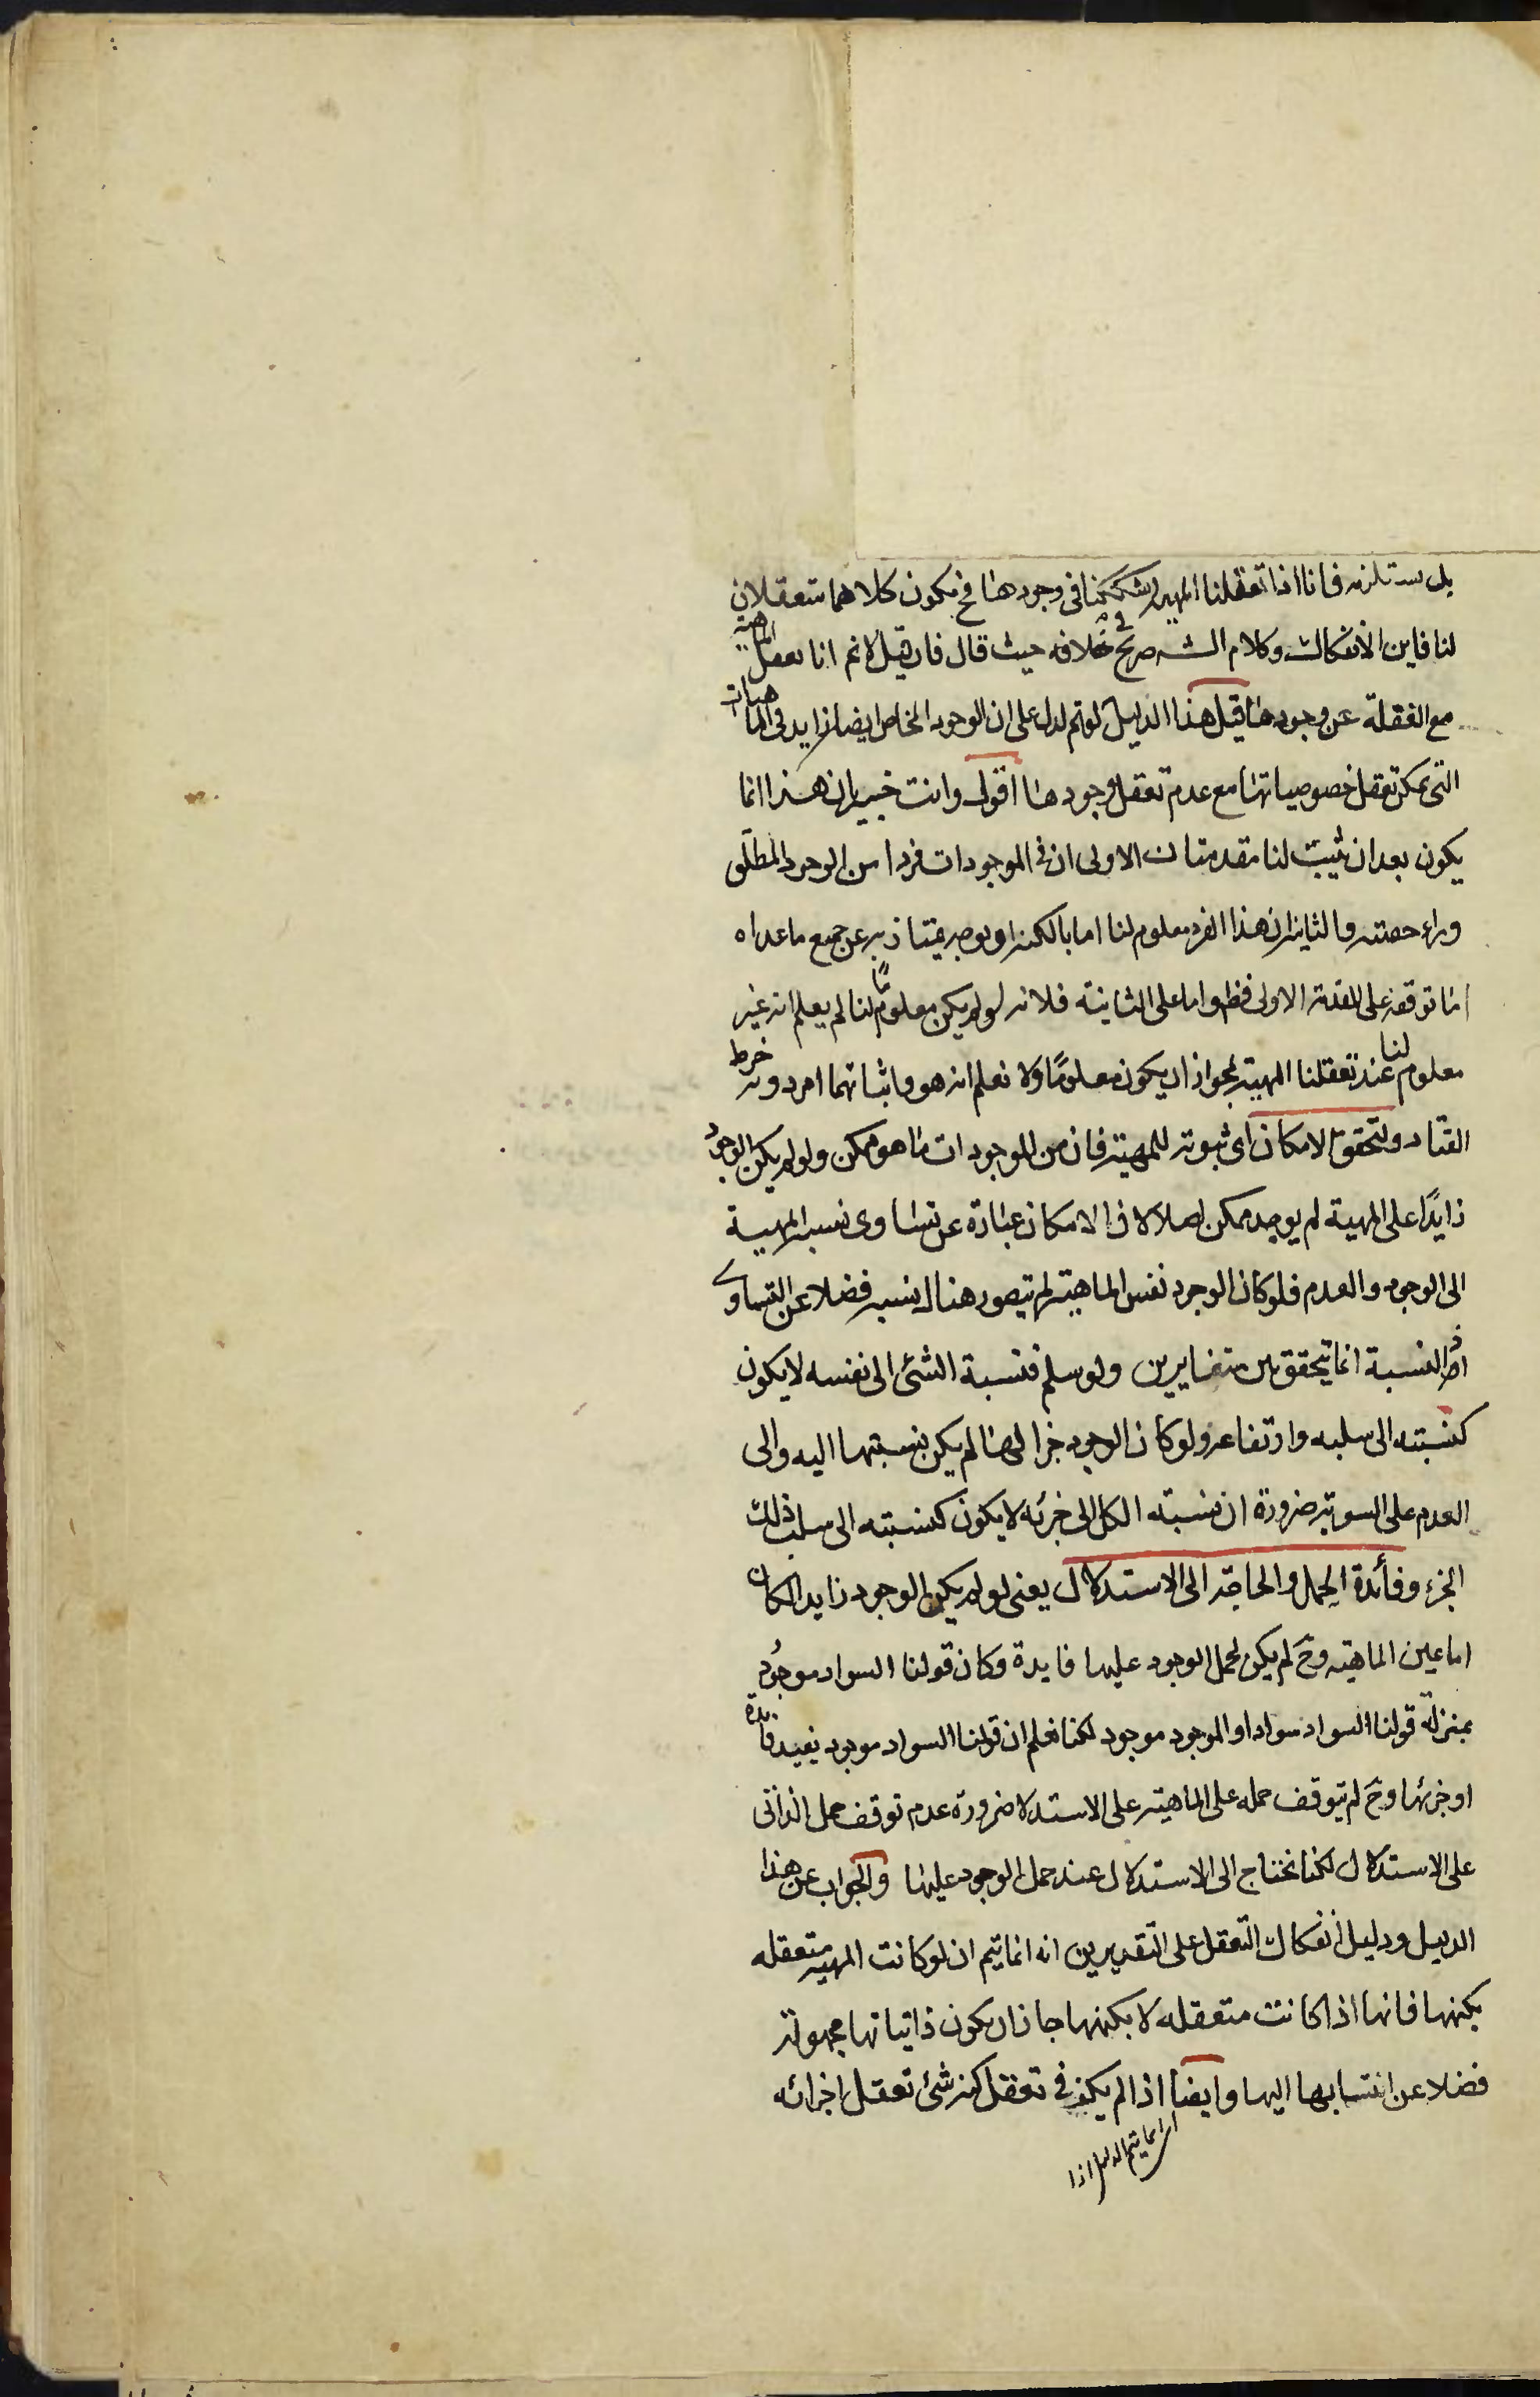 بل يستلزمه فانا اذا تعقلنا المهية وشككنا فى وجودها فح يكون كلاهما متعقلان
لنا فاين الانفكاك وكلام الشه صريح فى خلافه حيث قال فان قيل لانم انا نعقل الماهية
مع الغفلة عن وجودها قيل هذا الدليل لو تم لدل على ان الوجود الخاص ايضا زايد فى الماهيات
التى يمكن تعقل خصوصياتها مع عدم تعقل وجودها اقول وانت خبير بان هذا انما
يكون بعد ان يثبت لنا مقدمتان الاولى ان فى الموجودات فردا من الوجود المطلق
وراء حصته والثانية ان هذا الفرد معلوم لنا اما بالكنه او بوجه يمتاز به عن جميع ما عداه
اما توقفه على المقدمة الاولى فظ واما على الثانية فلانه لو لم يكن معلومًا لنا لم يعلم انه غير
معلوم لنا عند تعقلنا المهية لجواز ان يكون معلومًا ولا نعلم انه هو واثباتهما امر دونه خرط
القتاد ولتحقق الامكان اى ثبوته للمهية فان من الموجودات ما هو ممكن ولو لم يكن الوجود
زايدًا على المهية لم يوجد ممكن اصلا لان الامكان عبارة عن تساوى نسبة المهية
الى الوجود والعدم فلو كان الوجود نفس الماهية لم يتصور هناك نسبة فضلا عن التساوى
اذ النسبة انما يتحقق بين متغايرين ولو سلم فنسبة الشئ الى نفسه لا يكون
كنسبته الى سلبه وارتفاعه ولو كان الوجود جزا لها لم يكن نسبتها اليه والى
العدم على السوية ضرورة ان نسبته الكل الى جزئه لا يكون كنسبته الى سلب ذلك
الجزء وفائدة الحمل والحاجة الى الاستدلال يعنى لو لم يكن الوجود زايدا لكان
اما عين الماهية وح لم يكن لحمل الوجود عليها فايدة وكان قولنا السواد موجود
بمنزلة قولنا السواد سواد او الموجود موجود لكنا نعلم ان قولنا السواد موجود يفيد فايدة
او جزئها وح لم يتوقف حمله على الماهية على الاستدلا ضرورة عدم توقف حمل الذاتى
على الاستدلال لكنا نحتاج الى الاستدلال عند حمل الوجود عليها والجواب عن هذا
الدليل ودليل انفكاك التعقل على التقديرين انه انما يتم ان لو كانت المهية متعقله
بكنهها فانها اذا كانت متعقله لا بكنهها جاز ان يكون ذاتياتها مجهولة
فضلا عن انتسابها اليها وايضا اذا لم يكف فى تعقل كنه شئ تعقل اجزائه
انما يتم الدليل اذا